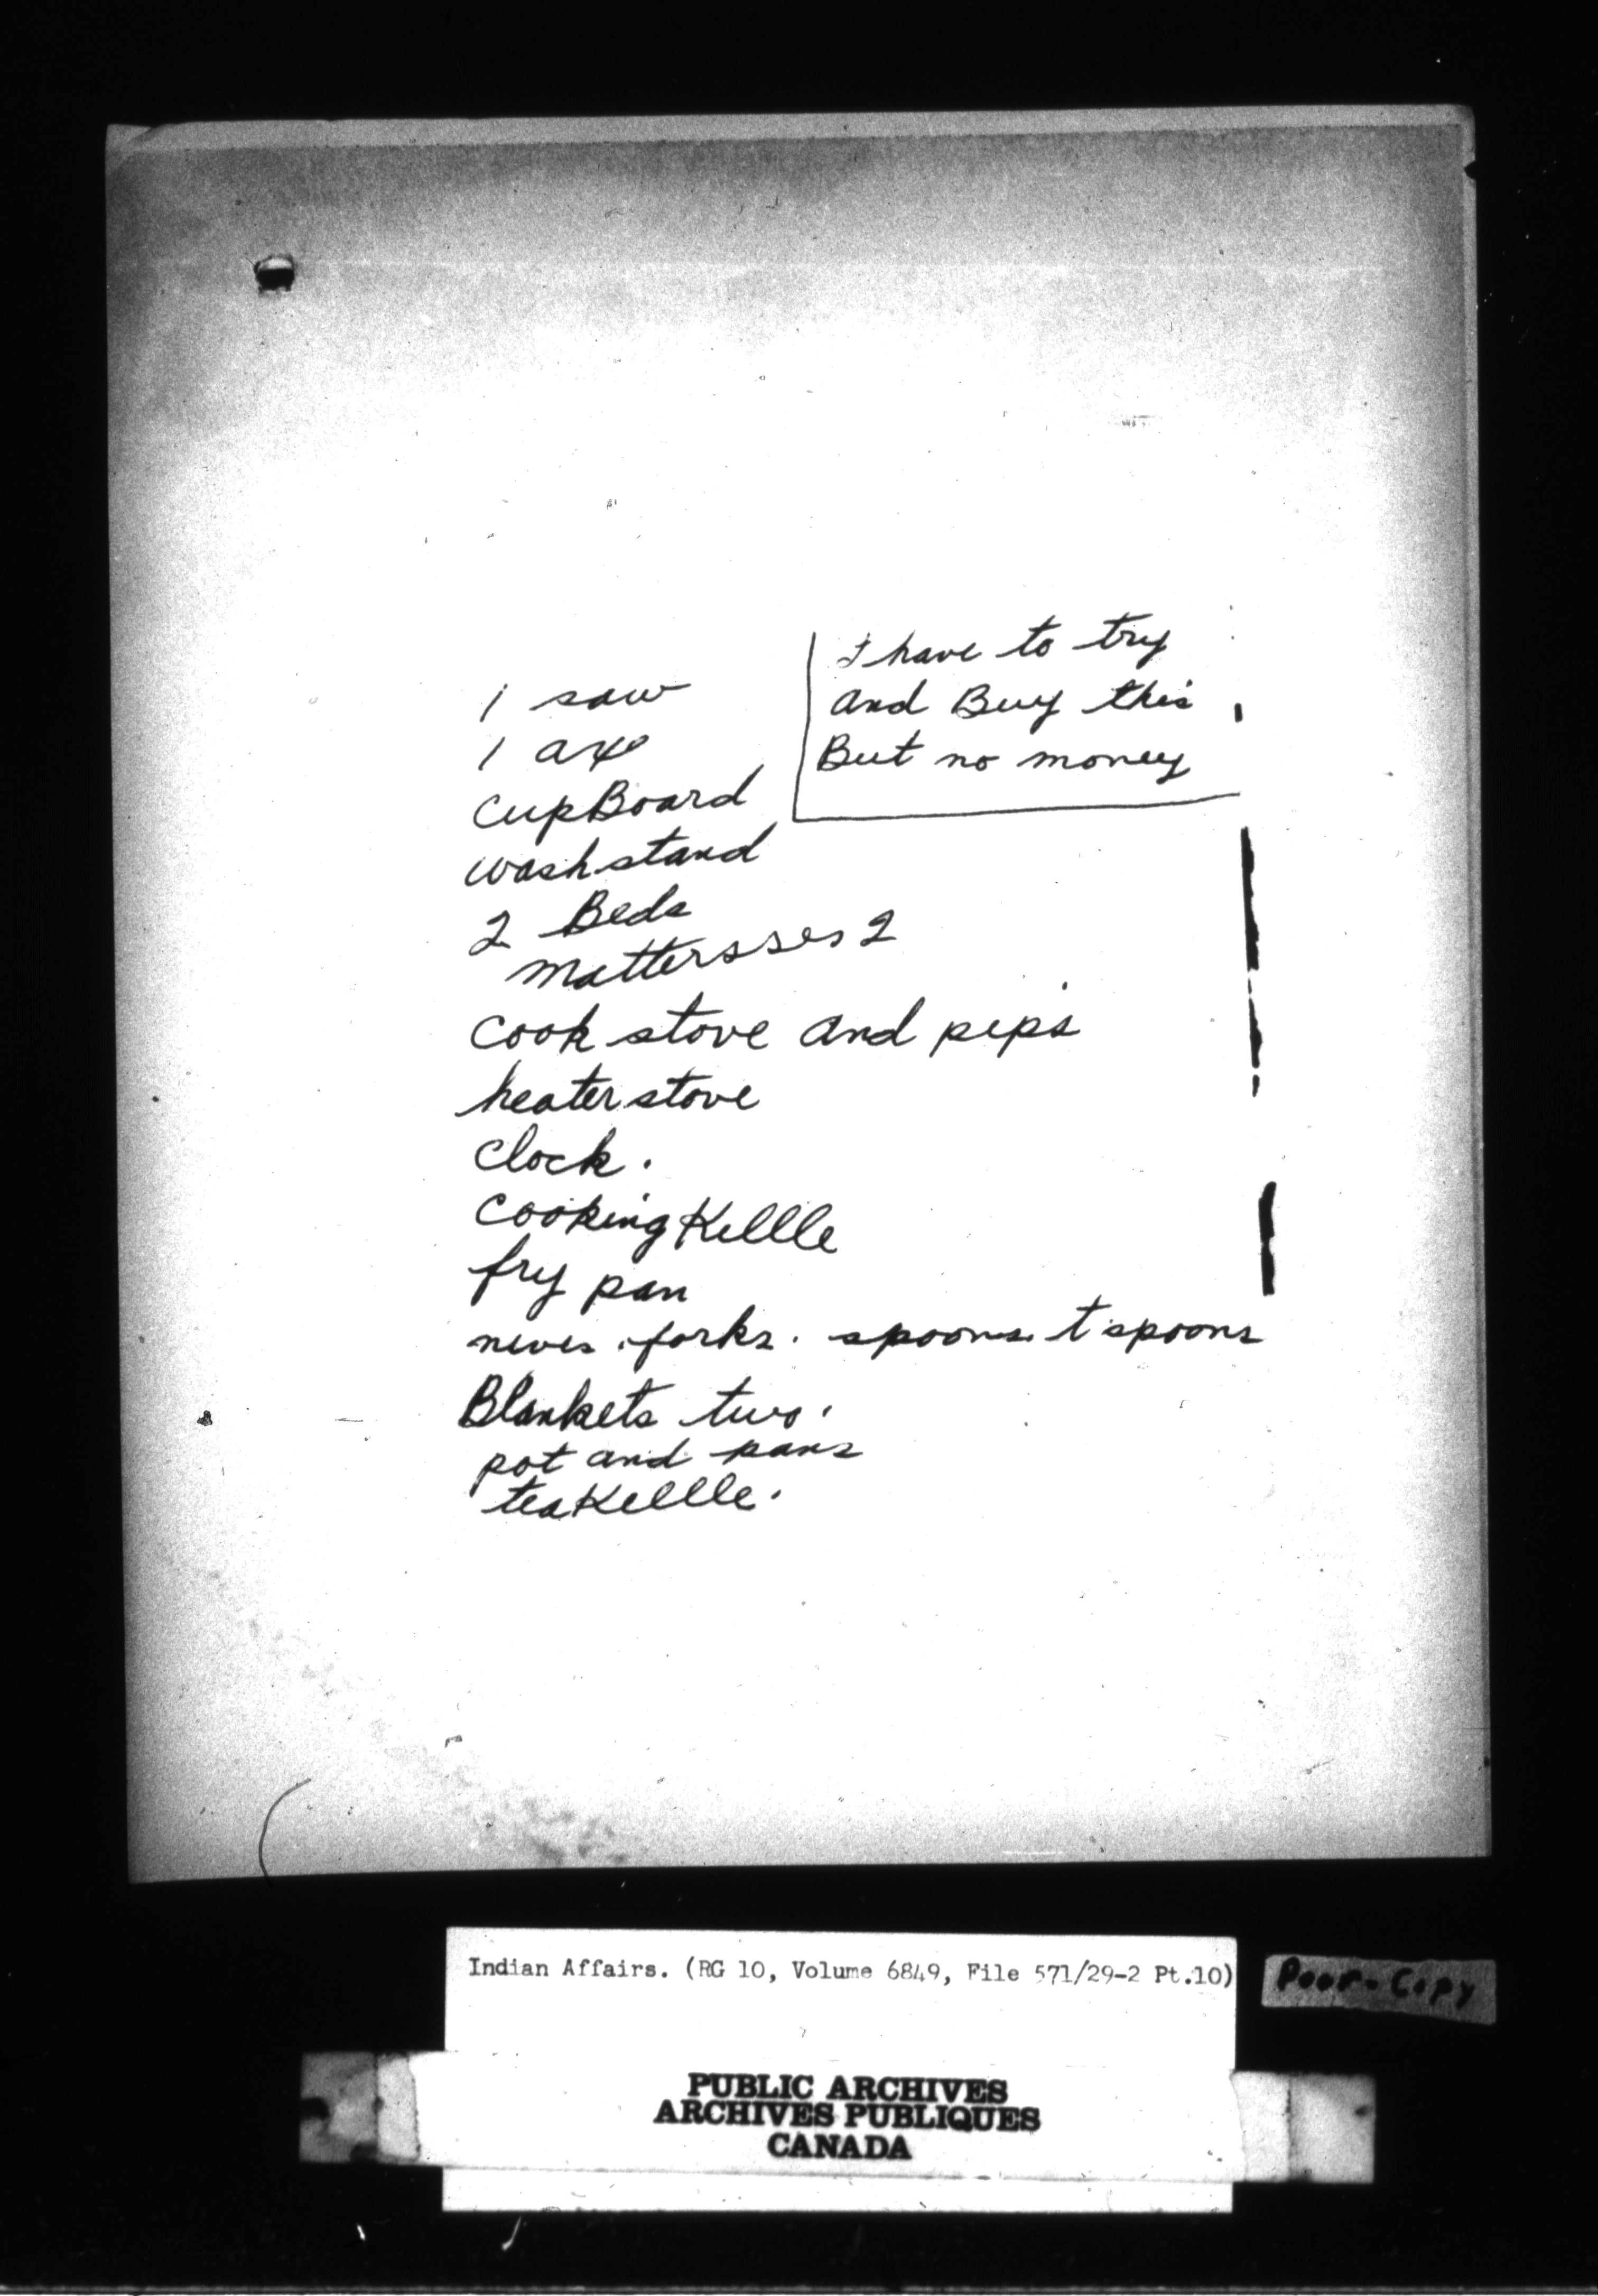 I have to try
and Buy this
But no money
1 saw
1 axe
cupBoard
washstand
2 Beds
mattersses 2
cook stove and pips
heater stove
clock.
cooking Kettle
fry pan
nives. forks. spoons. t spoons
Blankets two.
pot and pans
tea Kettle.
Indian Affairs. (RG 10, Volume 6849, File 571/29-2 Pt.10)
Poor-Copy
PUBLIC ARCHIVES
ARCHIVES PUBLIQUES
CANADA